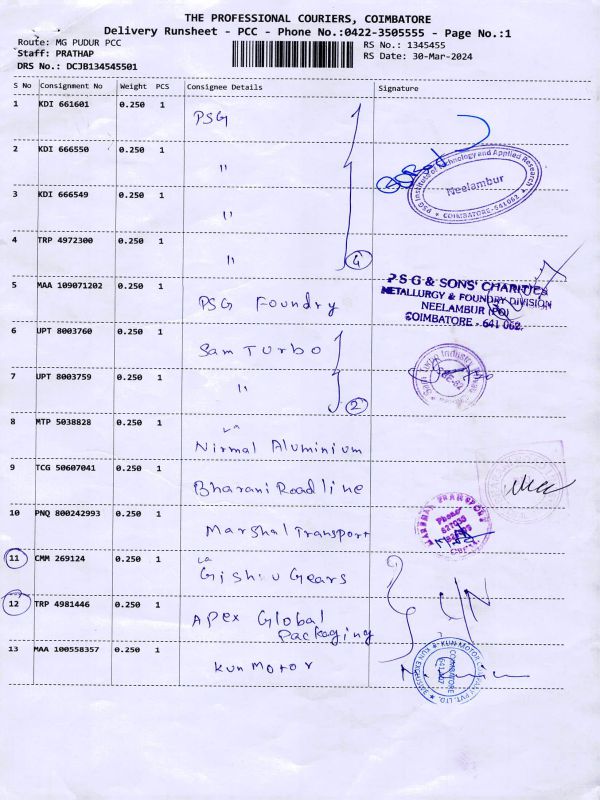 THE PROFESSIONAL COURIERS, COIMBATORE
Delivery Runsheet - PCC - Phone No.:0422-3505555 - Page No.:1
Route: MG PUDUR PCC
Staff: PRATHAP
DRS No.: DCJB134545501
RS No.: 1345455
RS Date: 30-Mar-2024
S No Consignment No Weight PCS Consignee Details Signature
1 KDI 661601 0.250 1 PSG
2 KDI 666550 0.250 1 "
3 KDI 666549 0.250 1 "
4 TRP 4972300 0.250 1 " 4
PSG Institute of Technology and Applied Research
Neelambur
COIMBATORE-641062
5 MAA 109071202 0.250 1 PSG Foundry
P S G & SONS' CHARITIES
METALLURGY & FOUNDRY DIVISION
NEELAMBUR (PO)
COIMBATORE - 641 062.
6 UPT 8003760 0.250 1 Sam Turbo
7 UPT 8003759 0.250 1 " 2
Sam Turbo Industry
8 MTP 5038828 0.250 1 Nirmal Aluminium
9 TCG 50607041 0.250 1 Bharani Roadline
10 PNQ 800242993 0.250 1 Marshal Transport
MARSHAL TRANSPORT
Phone:
11 CMM 269124 0.250 1 Gears
12 TRP 4981446 0.250 1 Apex Global
Packaging
13 MAA 100558357 0.250 1 Kun Motor
KUN MOTOR
COIMBATORE